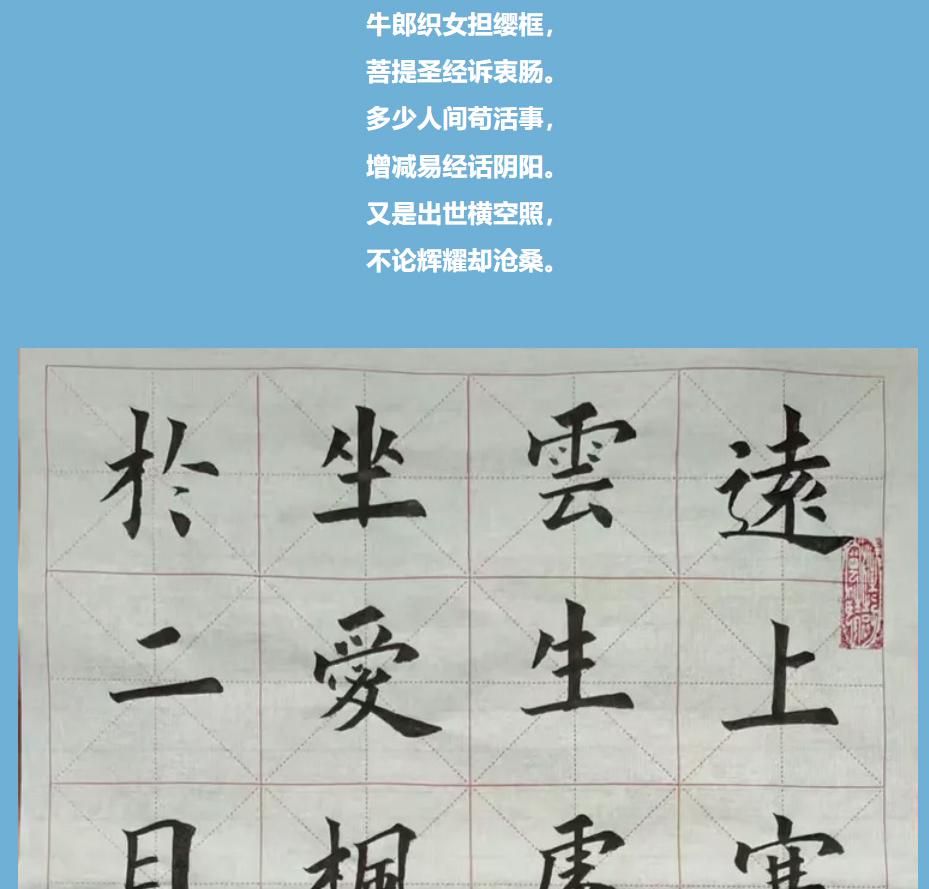 牛郎织女担缨框，
菩提圣经诉衷肠。
多少人间苟活事，
增减易经话阴阳。
又是出世横空照，
不论辉耀却沧桑。
遠上寒
雲生處
坐愛楓
於二月